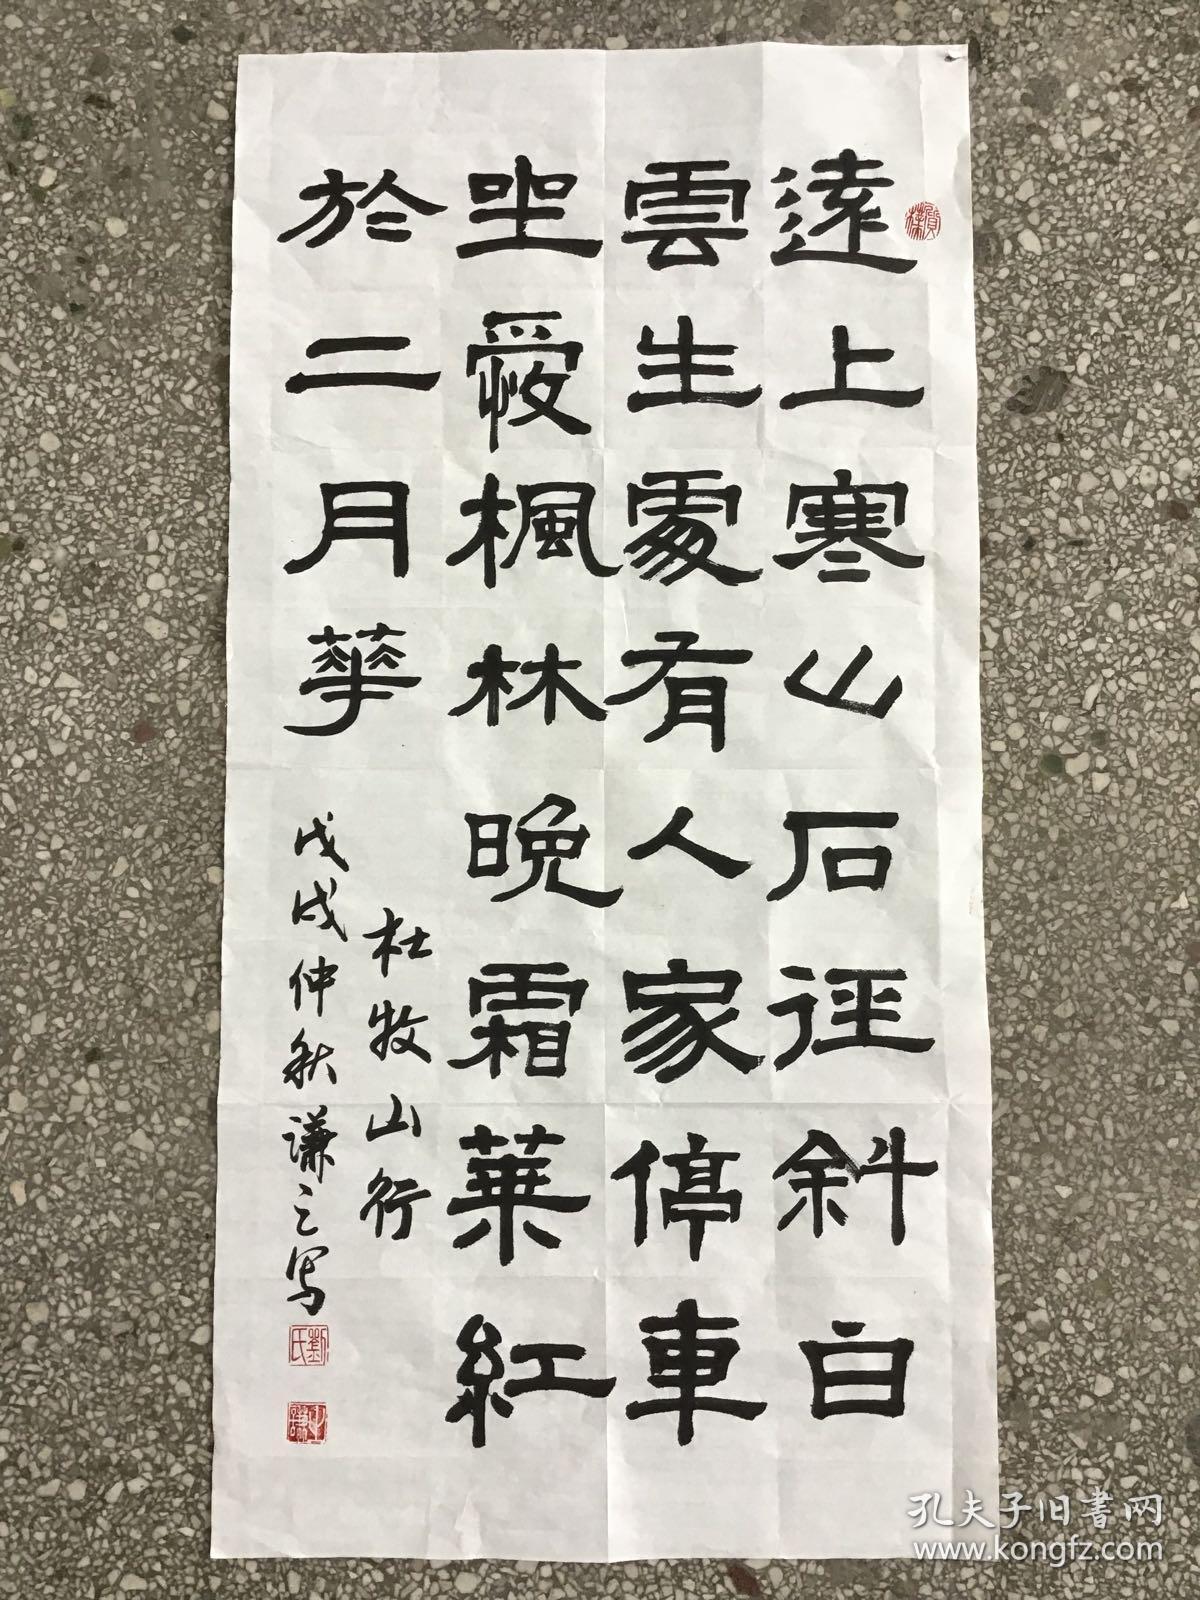 遠上寒山石徑斜白
雲生處有人家停車
坐愛楓林晚霜葉紅
於二月華
杜牧山行
戊戌仲秋谦之写
質樸
劉氏
謙之
孔夫子旧书网
www.kongfz.com